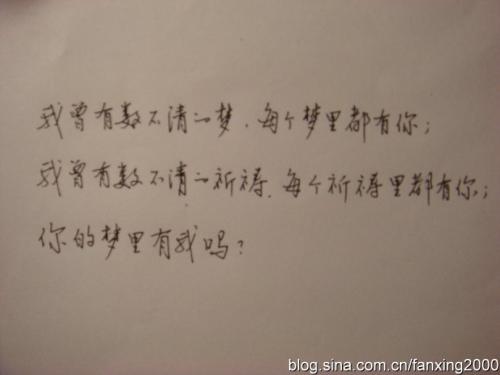 我曾有数不清的梦，每个梦里都有你；
我曾有数不清的祈祷，每个祈祷里都有你；
你的梦里有我吗？
blog.sina.com.cn/fanxing2000